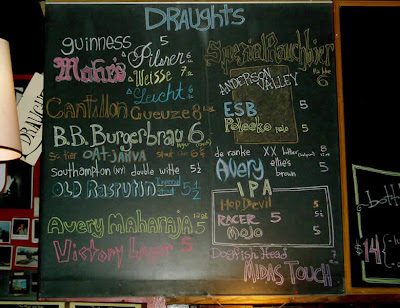 DRAUGHTS
guinness 5
Mahr's Pilsner 6
Weisse 7
Leicht 6
Cantillon Gueuze 8
B.B. Burgerbrau 6
Southampton (NY) double witte 5½
OLD RASPUTIN Imperial Stout 5½
Avery Maharaja 5
Victory Lager 5
Spezial Rauchbier
6
ANDERSON VALLEY
ESB
Poleeko pale 5
de ranke XX bitter 8
Avery ellie's brown 5
IPA
Hop Devil 5
RACER 5 5½
Mojo 5
Dogfish Head 7
MIDAS TOUCH
bott
$14